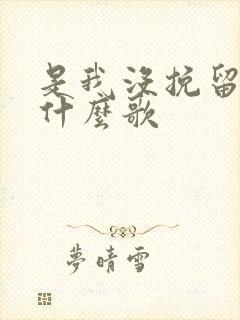 是我沒挽留
什麼歌
夢晴雪